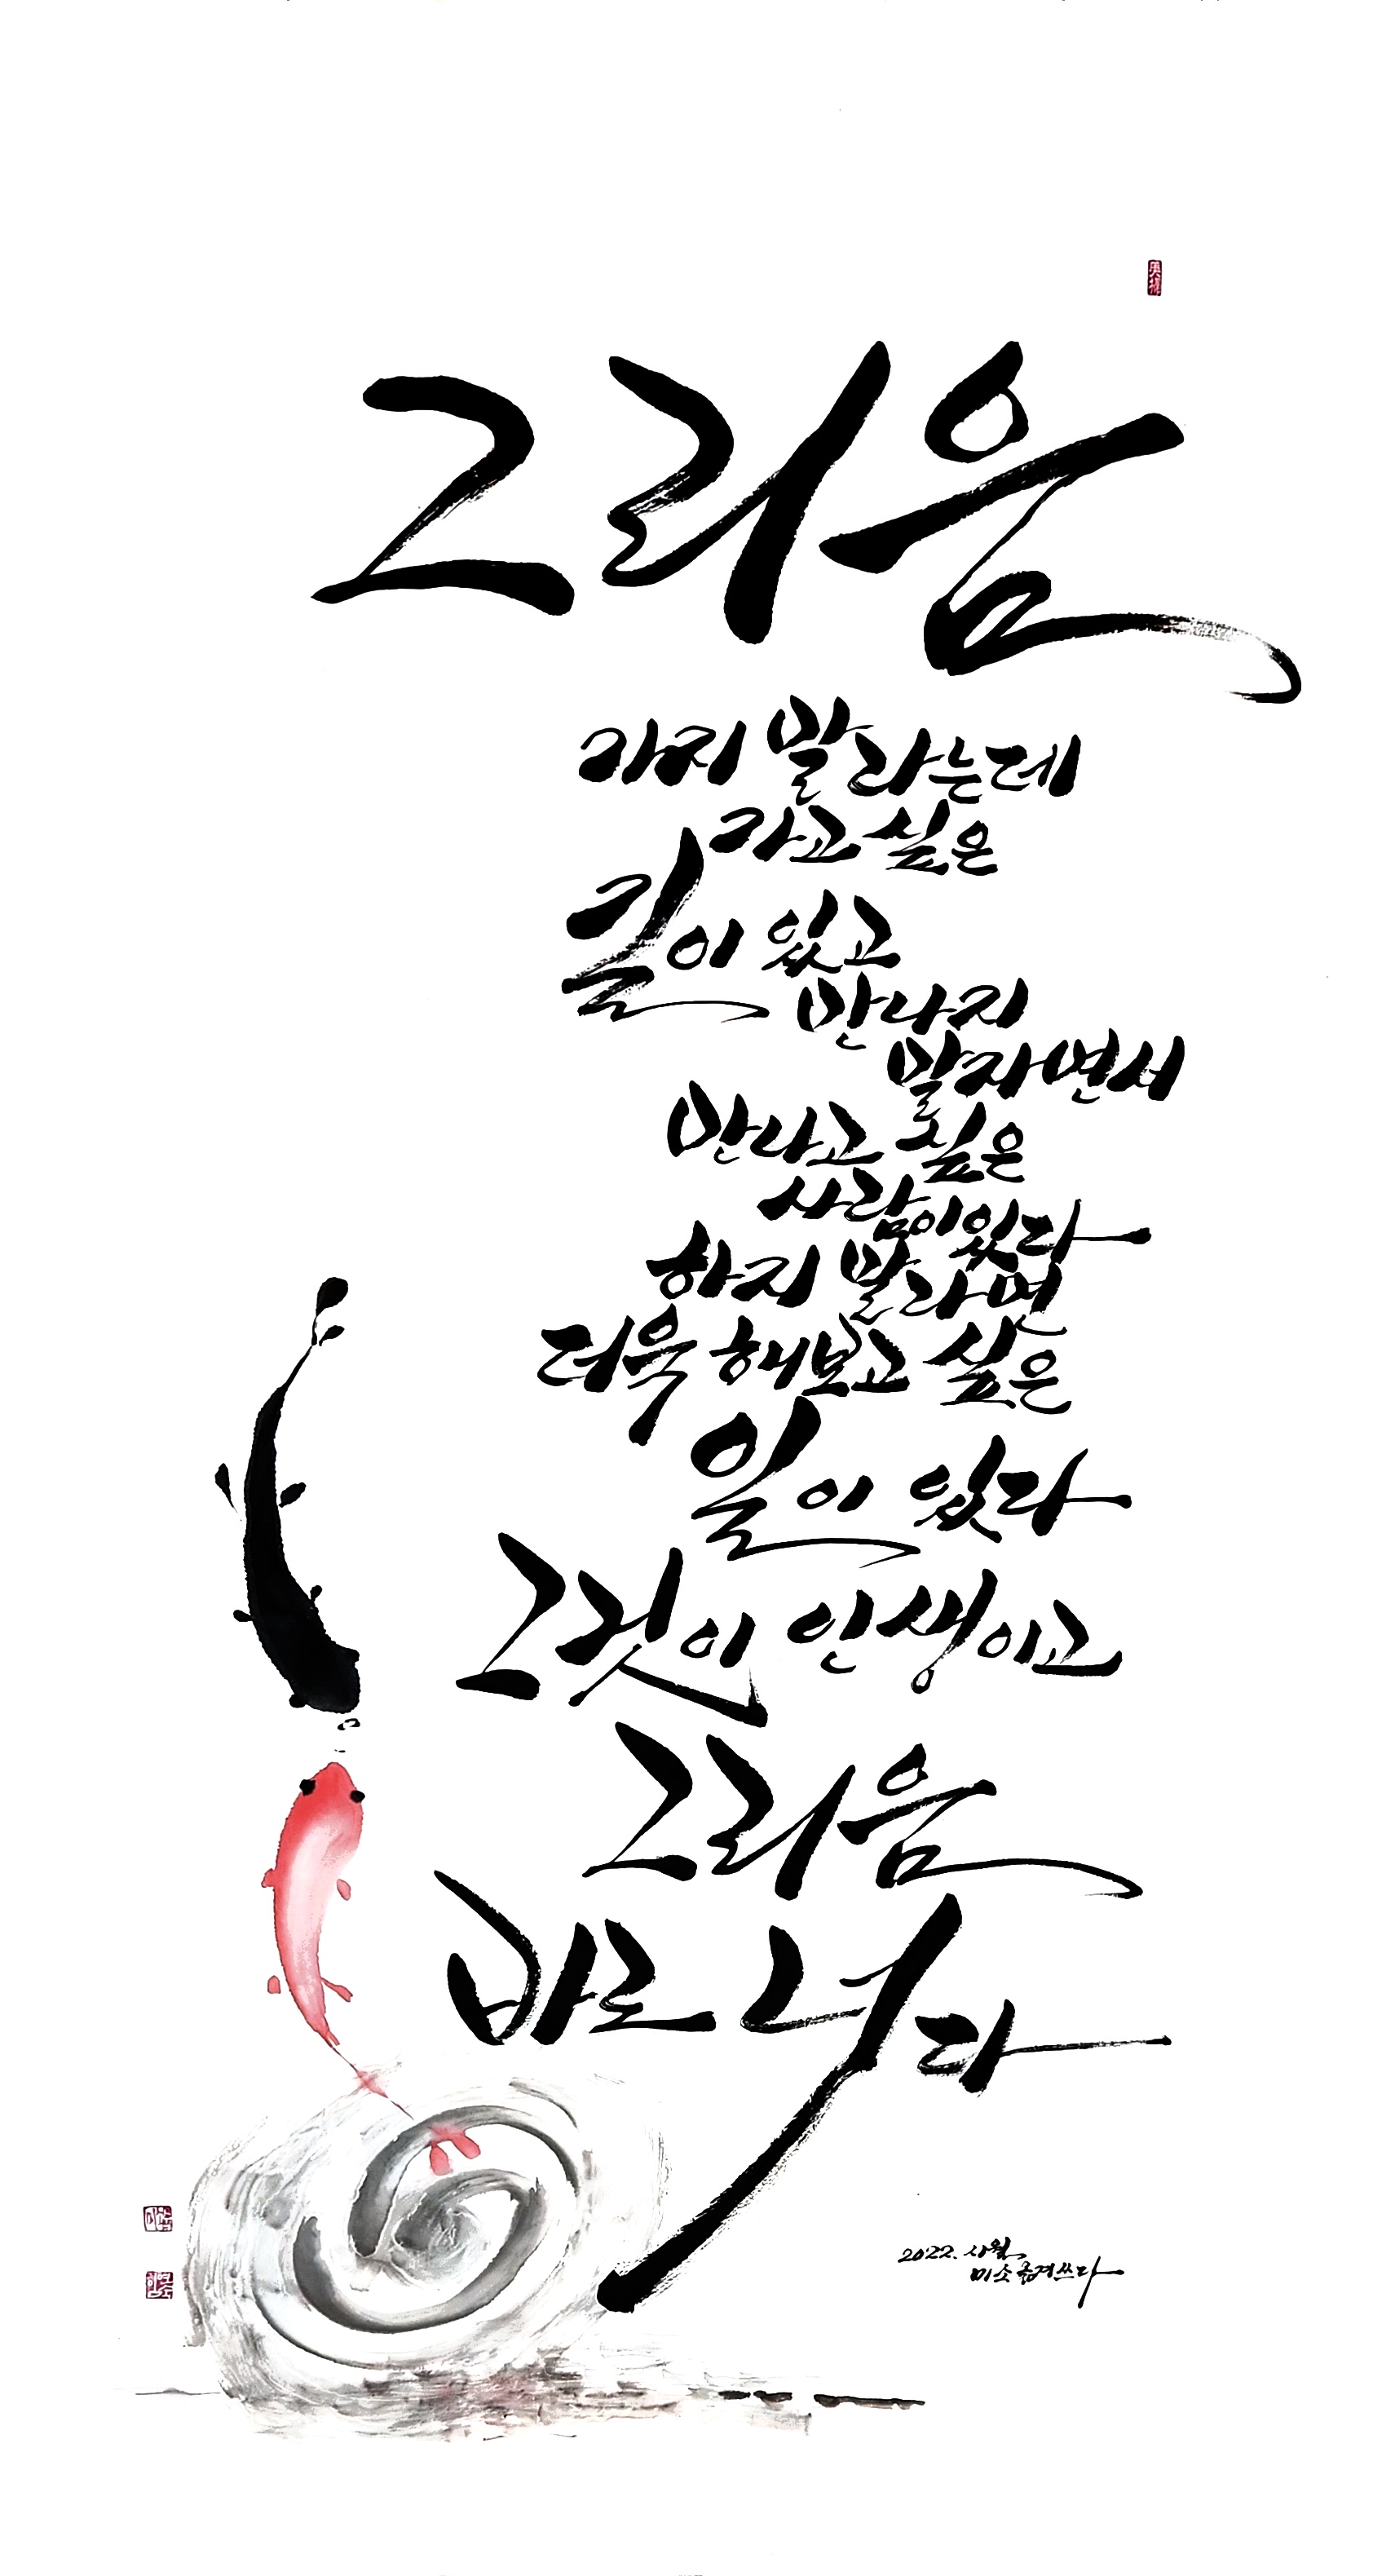 그리움
가지 말라는데
가고 싶은
길이 있고
만나지
말자면서
만나고 싶은
사람이 있다
하지 말라면
더욱 해보고 싶은
일이 있다
그것이 인생이고
그리움
바로 너다
2022. 사월
미소 쓰다